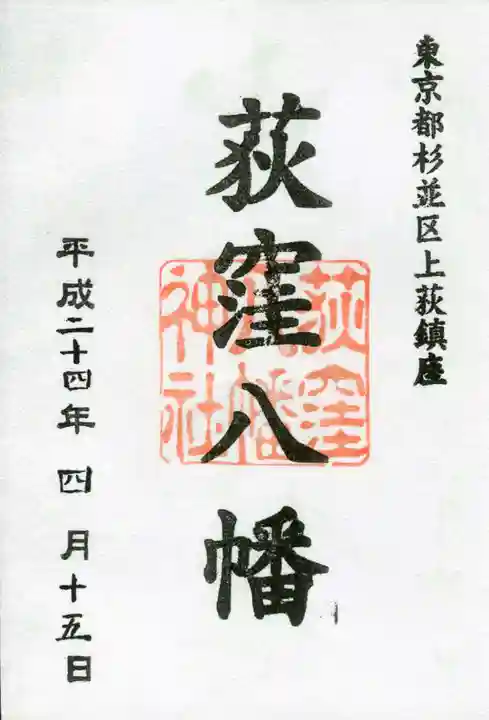 東京都杉並区上荻鎮座
荻窪八幡
荻窪
八幡
神社
平成二十四年 四 月十五日